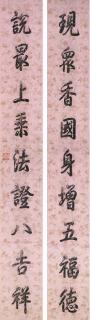 現眾香國身增五福德
說最上乘法證八吉祥